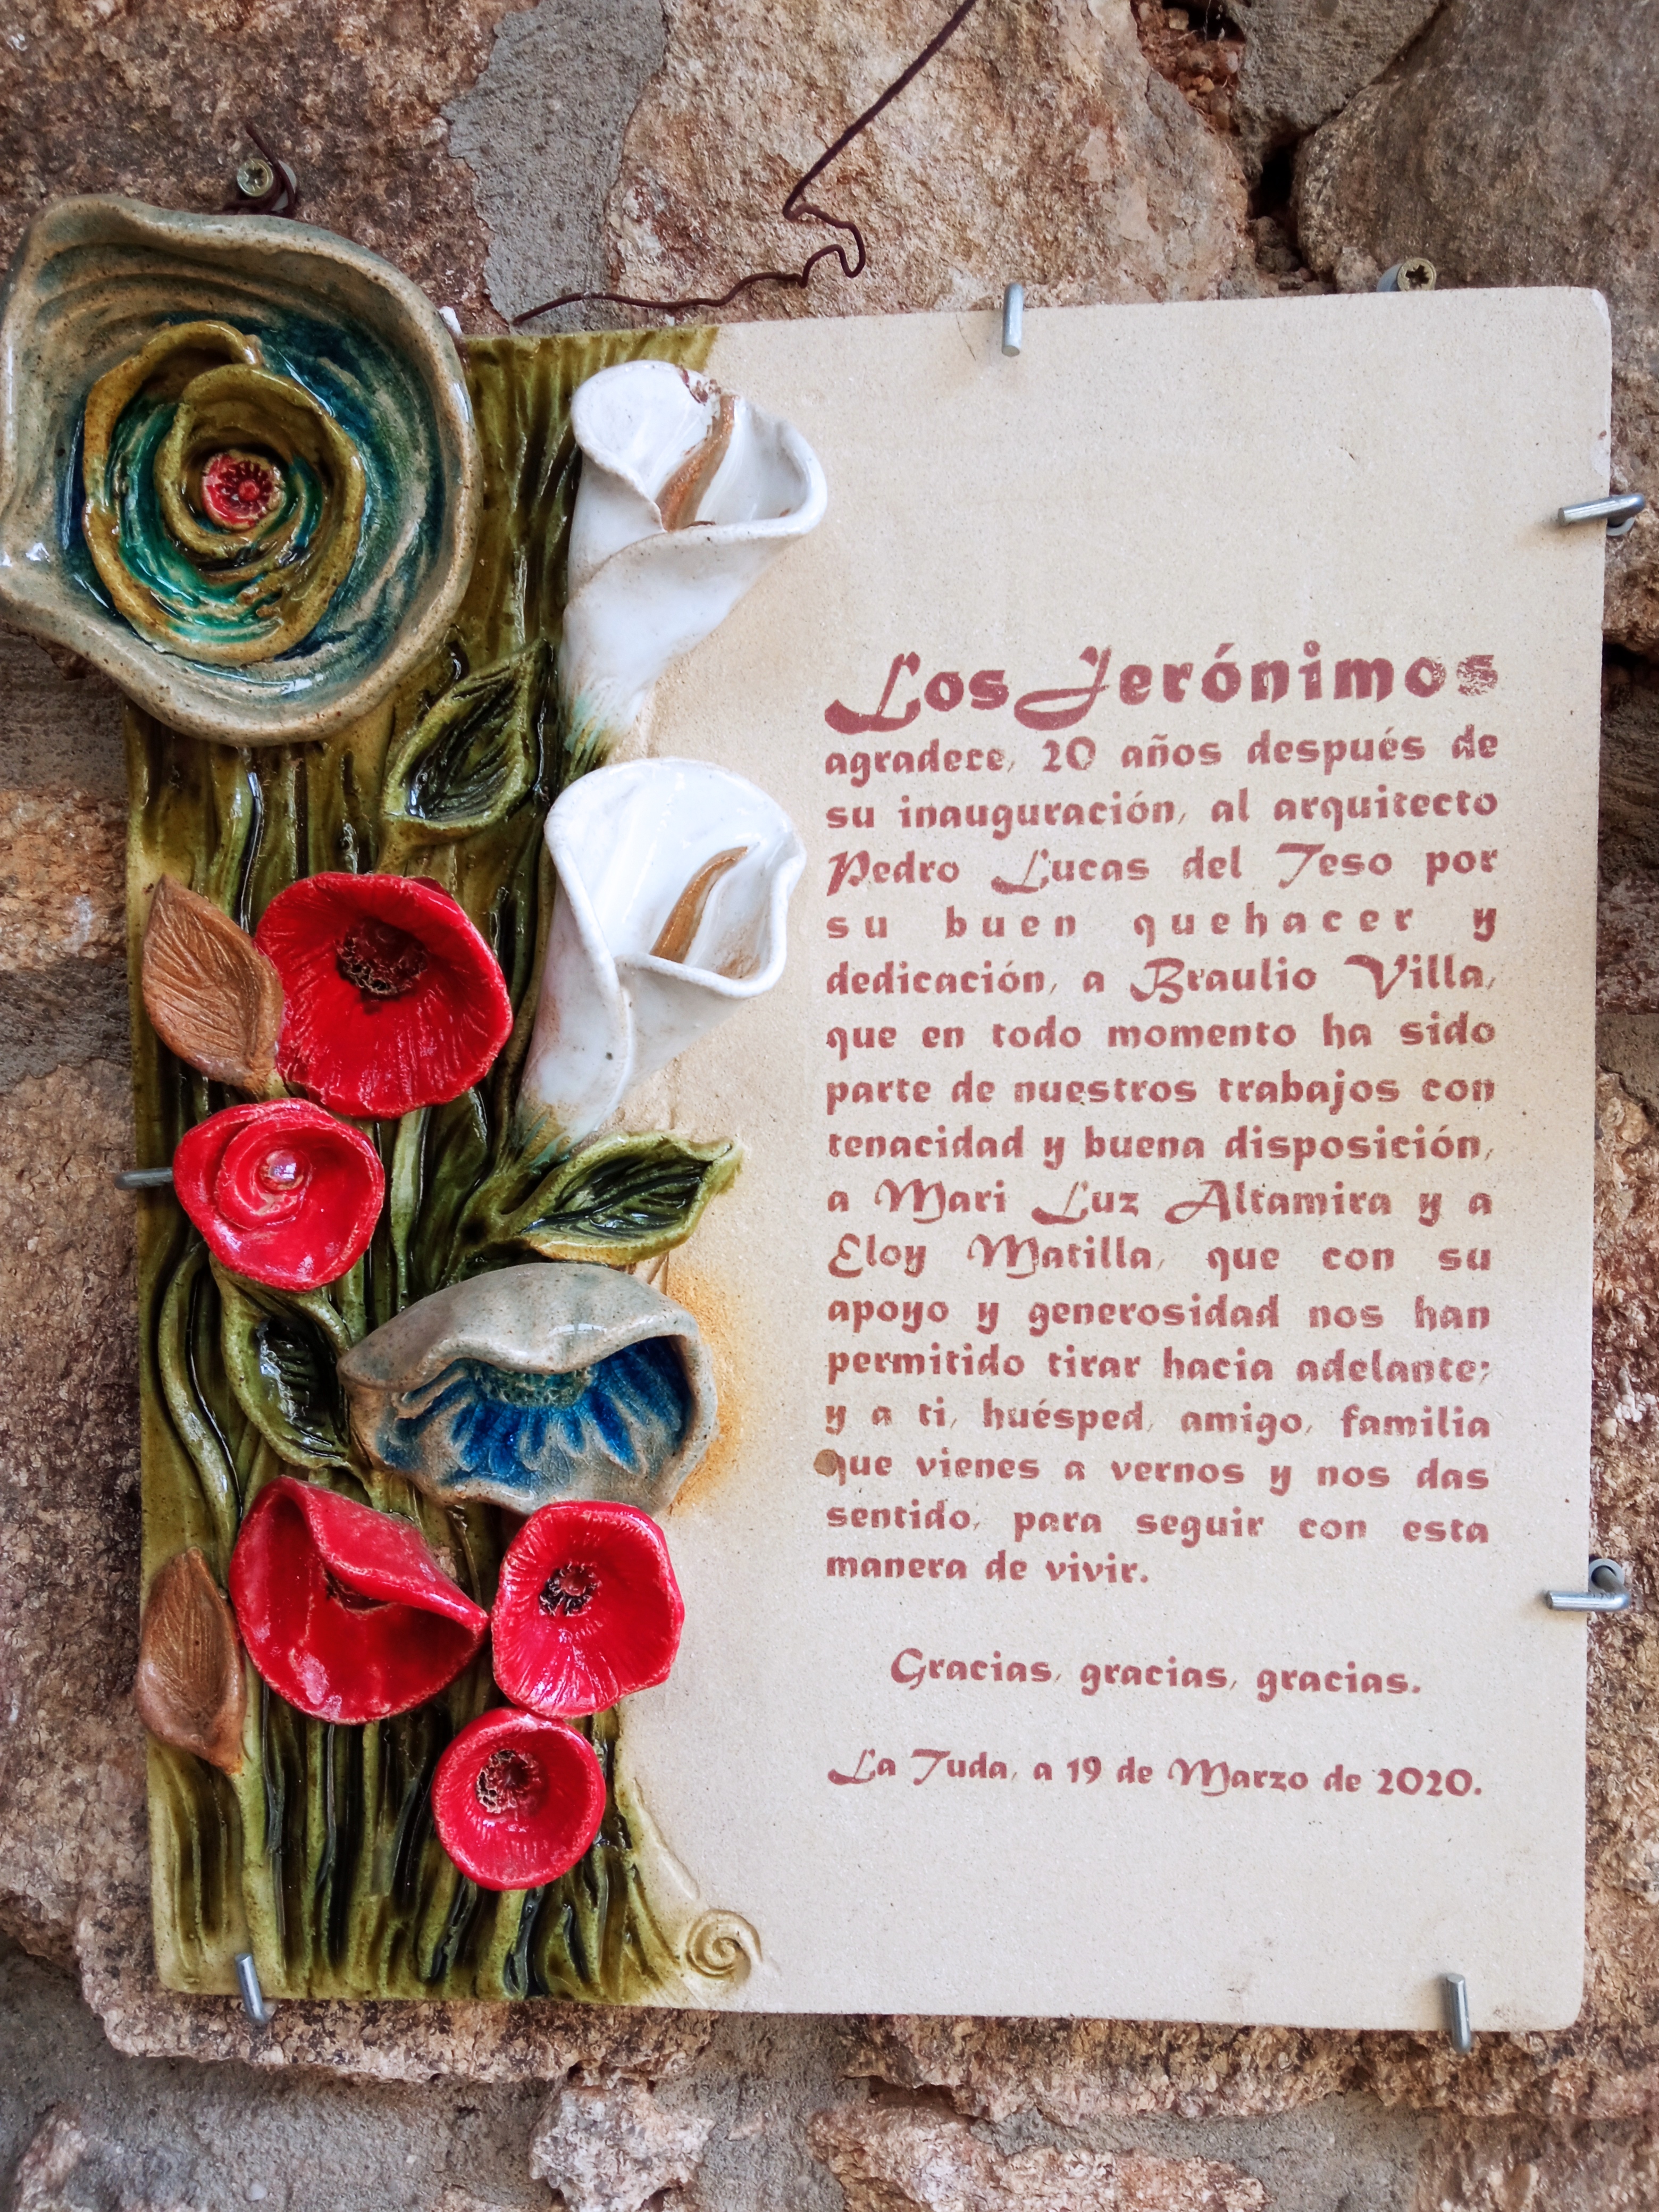 Los Jerónimos
agradece, 20 años después de
su inauguración, al arquitecto
Pedro Lucas del Teso por
su buen quehacer y
dedicación, a Braulio Villa,
que en todo momento ha sido
parte de nuestros trabajos con
tenacidad y buena disposición,
a Mari Luz Altamira y a
Eloy Matilla, que con su
apoyo y generosidad nos han
permitido tirar hacia adelante;
y a ti, huésped, amigo, familia
que vienes a vernos y nos das
sentido, para seguir con esta
manera de vivir.
Gracias, gracias, gracias.
La Tuda, a 19 de Marzo de 2020.